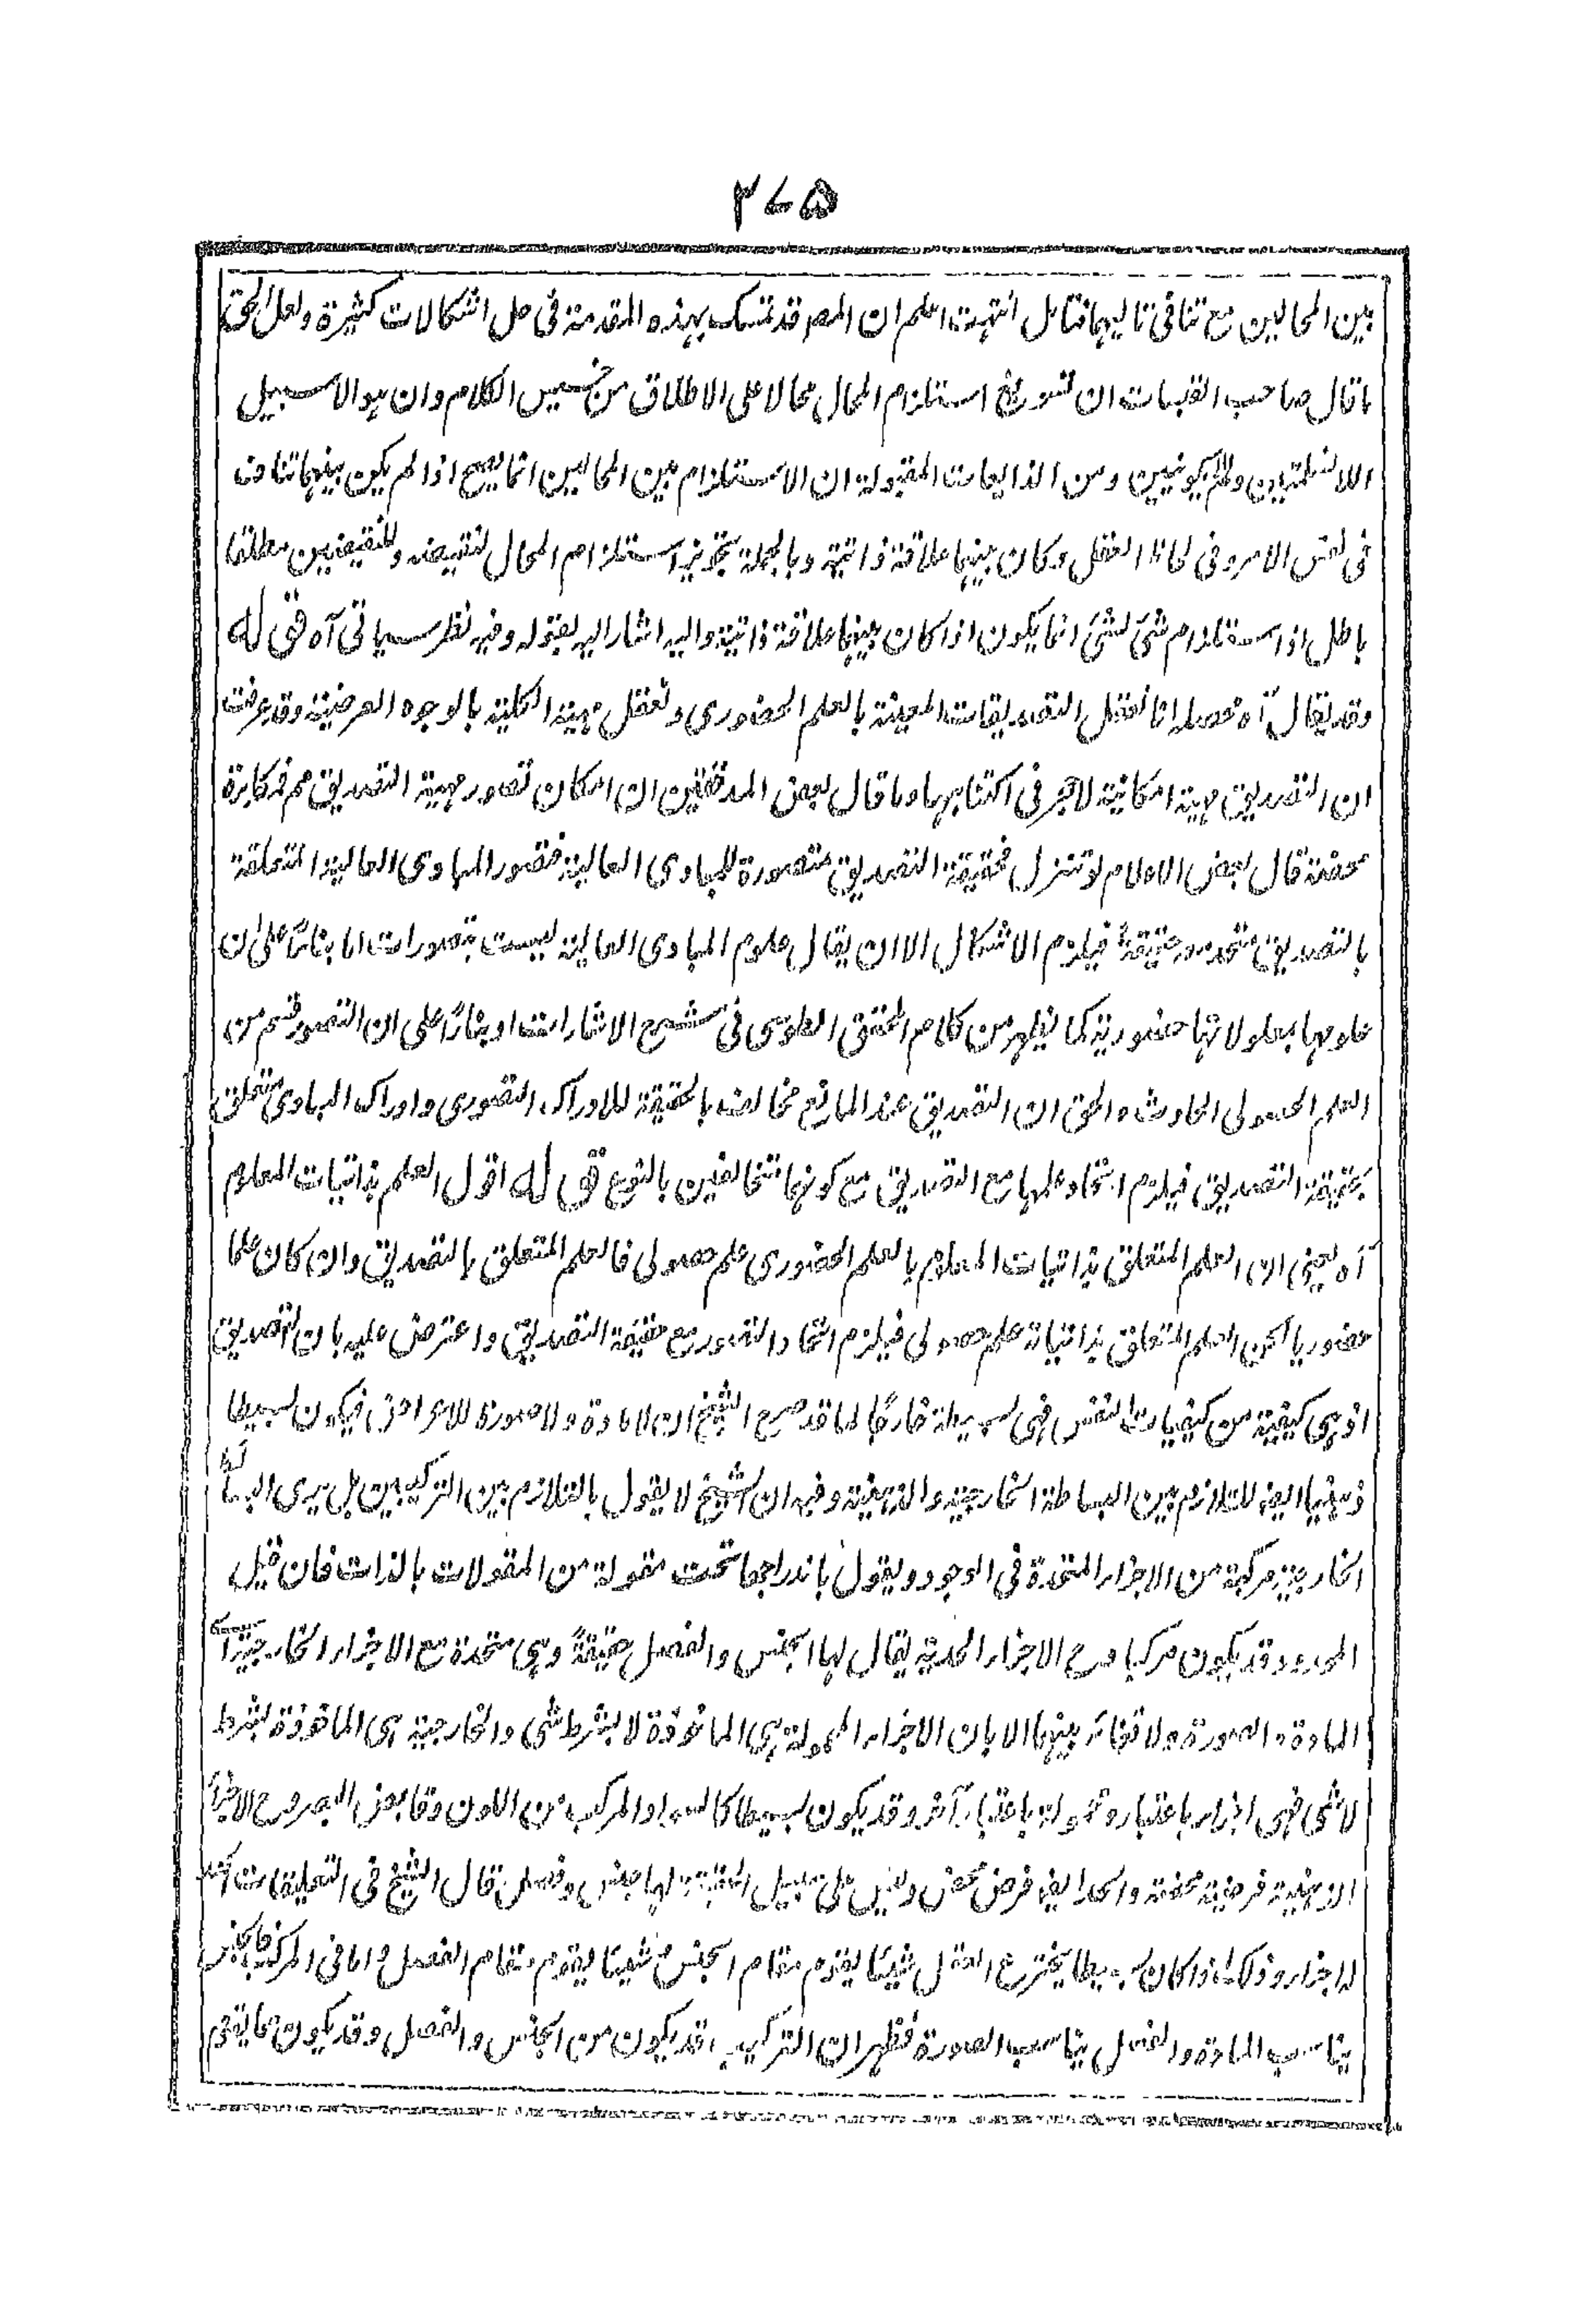 ٢٧٥
بين المحالين مع تنافى تاليهما فتامل انتهت اعلم ان المصر قد تمسك بهذه المقدمة فى حل اشكالات كثيرة ولعل الحق
ما قال صاحب القبسات ان تسويغ استلزام المحال محالا على الاطلاق من خسيس الكلام وان هو الا سبيل
ومن الذايعات المقبولة ان الاستلزام بين المحالين انما يصح اذا لم يكون بينهما تناف
فى نفس الامر وفى لحاظ العقل وكان بينهما علاقة ذاتية وبالجملة تجويز استلزام المحال لنقيضه وللنقيضين مطلقا
باطل اذ استلزام شئ لشئ انما يكون اذا كان بينهما علاقة ذاتية واليه اشار اليه بقوله وفيه نظر سياتى آه قوله
وقد يقال آه محصله انا نعقل التصديقات المعينة بالعلم الحضورى ونعقل مهيته الكلية بالوجوه العرضية وقد عرفت
ان التصديق مهية امكانية لا حجر فى اكتناهها وما قال بعض المدققين ان امكان تصور مهية التصديق مم فمكابرة
محضة قال بعض الاعلام لو تنزل فحقيقة التصديق متصورة للمبادى العالية فتصور المبادى العالية المتعلقة
بالتصديق متحد مع حقيقة فيلزم الاشكال الا ان يقال علوم المبادى العالية ليست بتصورات اما بناءً على ان
علومها بمعلولاتها حضورية كما يظهر من كلام المحقق الطوسى فى شرح الاشارات او بناءً على ان التصور قسم من
العلم الحصولى الحادث والحق ان التصديق عند المانع مخالف بالحقيقة للادراك التصورى وادراك المبادى متعلق
بحقيقة التصديق فيلزم اتحاد علمها مع التصديق مع كونهما متخالفين بالنوع قوله اقول العلم بذاتيات المعلوم
آه يعنى ان العلم المتعلق بذاتيات المعلوم بالعلم الحضورى علم حصولى فالعلم المتعلق بالتصديق وان كان علما
حضوريا لكن العلم المتعلق بذاتياته علم حصولى فيلزم اتحاد التصور مع حقيقة التصديق واعترض عليه بان التصديق
اذ هى كيفية من كيفيات النفس فهى بسيطة خارجًا لما قد صرح الشيخ ان لا مادة ولا صورة للاعراض فيكون بسيطا
ذهنيا ايضا للتلازم بين البساطة الخارجية والذهنية وفيه ان الشيخ لا يقول بالتلازم بين التركيبين بل يرى البسائط
الخارجية مركبة من الاجزاء المتحدة فى الوجود ويقول باندراجها تحت مقولة من المقولات بالذات فان قيل
المحدود قد يكون مركبا وح الاجزاء الحدية يقال لها الجنس والفصل حقيقةً وهى متحدة مع الاجزاء الخارجية
المادة والصورة ولا تغاير بينهما الا بان الاجزاء المحمولة هى الماخوذة لا بشرط شئ والخارجية هى الماخوذة بشرط
لا شئ فهى اجزاء باعتبار ومحمولة باعتبار آخر وقد يكون بسيطا كالسواد المركب من اللون وقابض البصر وح الاجزاء
الذهنية فرضية محضة والحد ايضا فرض محض وليس على سبيل الحقيقة لها جنس وفصل قال الشيخ فى التعليقات
له اجزاء وذلك اذا كان بسيطا يخترع العقل شيئا يقوم مقام الجنس وشيئا يقوم مقام الفصل واما فى المركب فالجنس
يناسب المادة والفصل يناسب الصورة فظهر ان التركيب قد يكون من الجنس والفصل وقد يكون مما يقوم